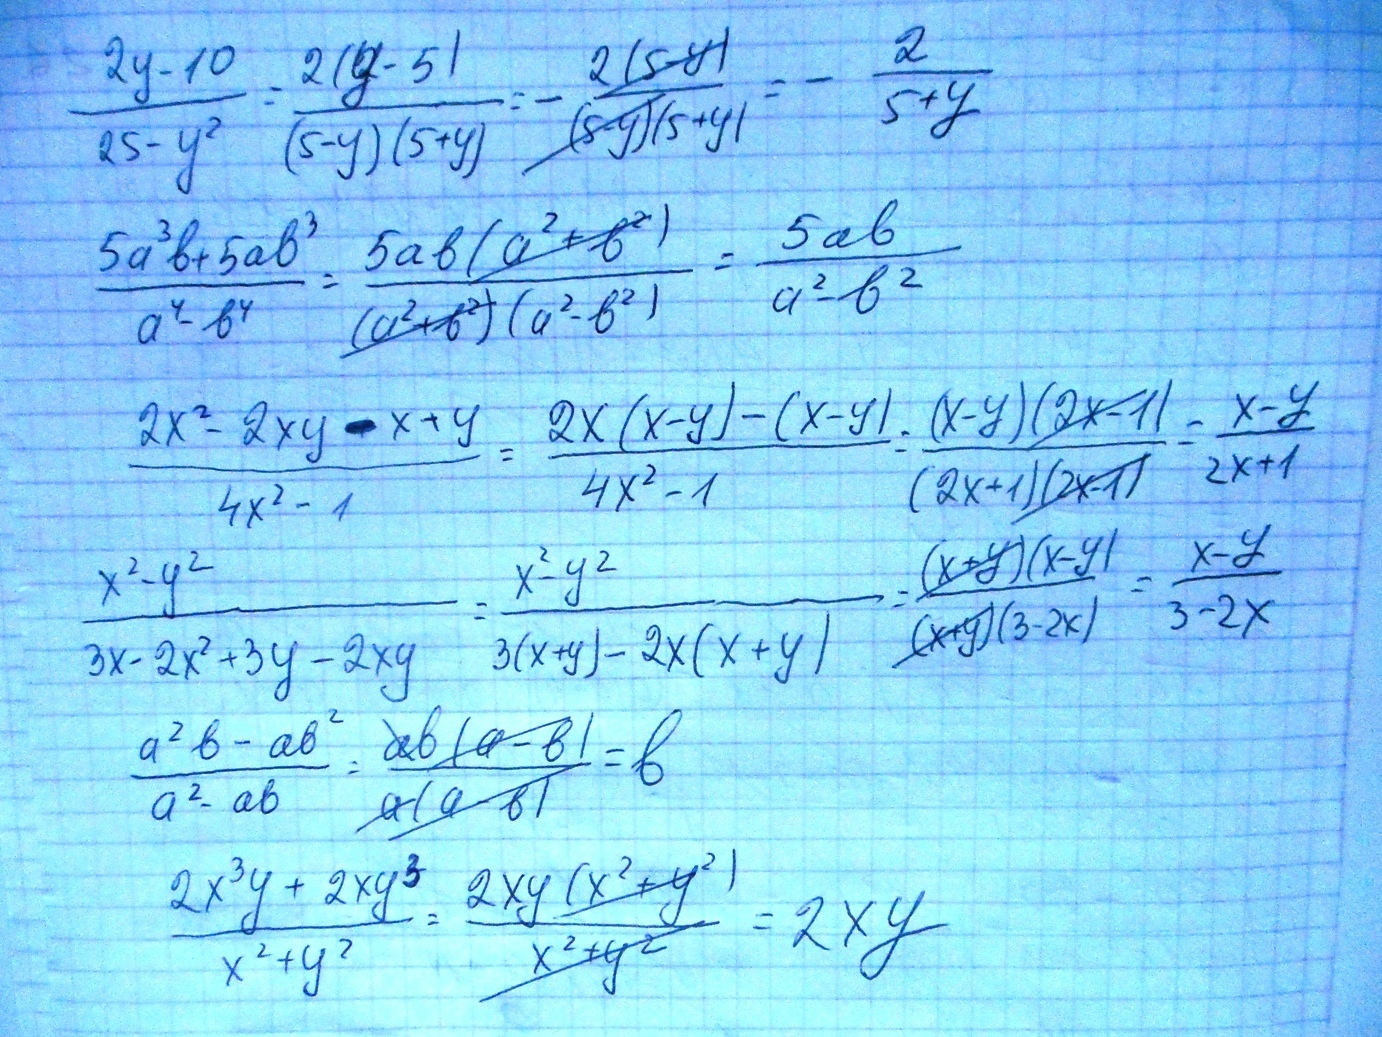 (2y-10)/(25-y²) = 2(y-5)/((5-y)(5+y)) = - 2(5-y)/((5-y)(5+y)) = - 2/(5+y)
(5a³b+5ab³)/(a⁴-b⁴) = 5ab(a²+b²)/((a²+b²)(a²-b²)) = 5ab/(a²-b²)
(2x²-2xy-x+y)/(4x²-1) = (2x(x-y)-(x-y))/(4x²-1) = (x-y)(2x-1)/((2x+1)(2x-1)) = (x-y)/(2x+1)
(x²-y²)/(3x-2x²+3y-2xy) = (x²-y²)/(3(x+y)-2x(x+y)) = (x+y)(x-y)/((x+y)(3-2x)) = (x-y)/(3-2x)
(a²b-ab²)/(a²-ab) = ab(a-b)/(a(a-b)) = b
(2x³y+2xy³)/(x²+y²) = 2xy(x²+y²)/(x²+y²) = 2xy